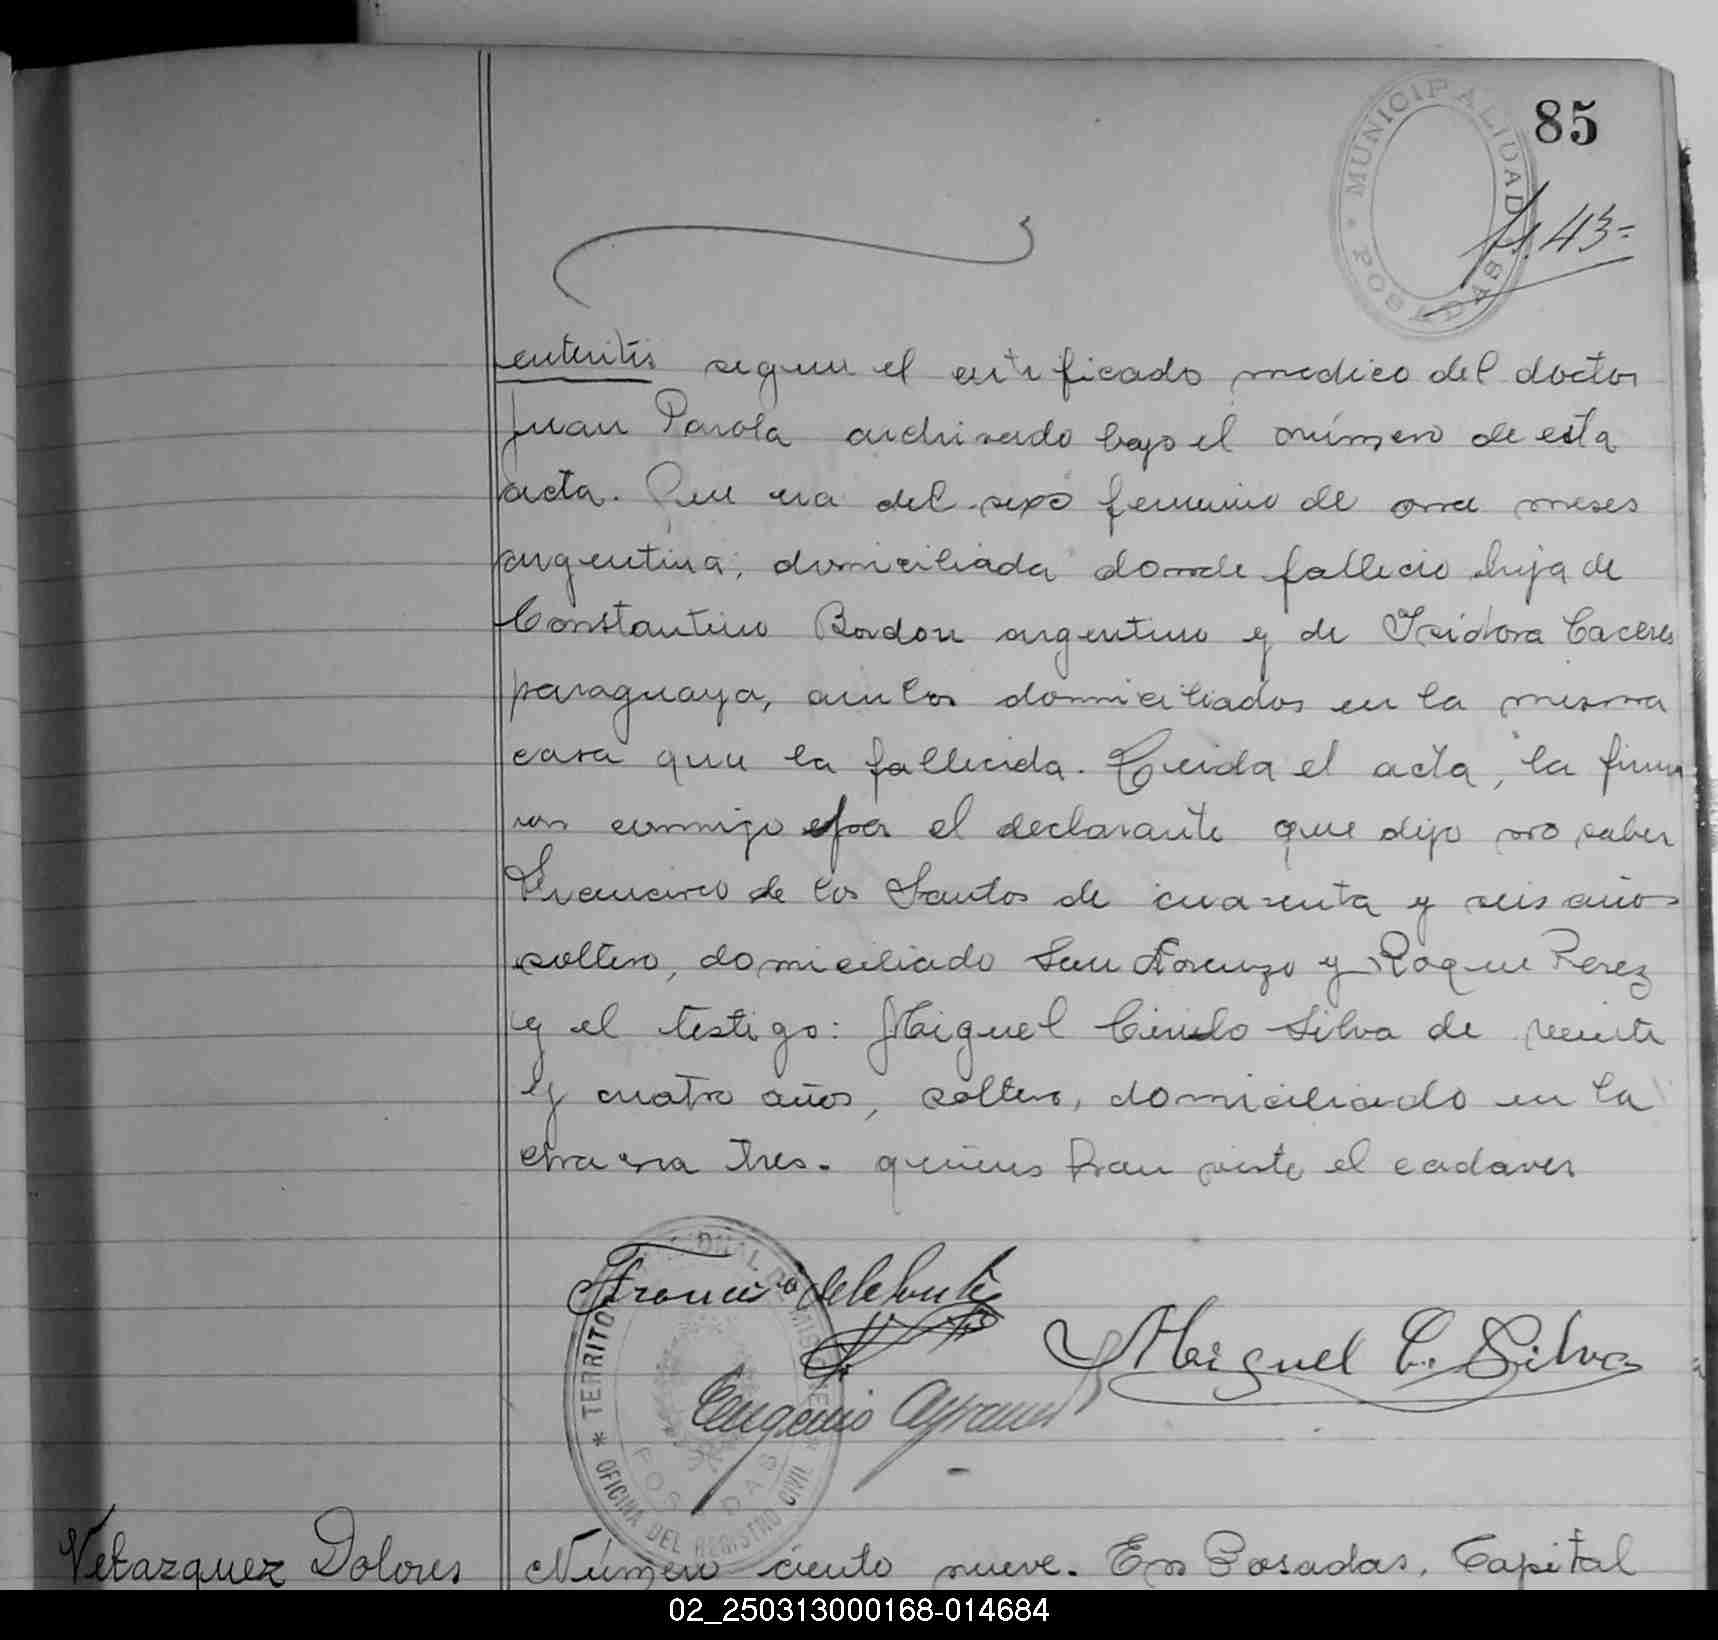 MUNICIPALIDAD
POSADAS
85
fs. 43=
enteritis segun el certificado medico del doctor
Juan Parola archivado bajo el número de esta
acta. Que era del sexo femenino de once meses
argentina, domiciliada donde fallecio hija de
Constantino Bordon argentino y de Isidora Caceres
paraguaya, ambos domiciliados en la misma
casa que la fallecida. Leida el acta, la firma
ron conmigo por el declarante que dijo no saber
Francisco de los Santos de cuarenta y seis años
soltero, domiciliado San Lorenzo y Roque Perez
y el testigo: Miguel Cirilo Silva de veinte
y cuatro años, soltero, domiciliado en la
chacra tres. quienes han visto el cadaver
TERRITORIO NACIONAL DE MISIONES
POSADAS
OFICINA DEL REGISTRO CIVIL
Francisco de los Santos
Miguel C. Silva
Eugenio
Velazquez Dolores Número ciento nueve. En Posadas, Capital
02_250313000168-014684